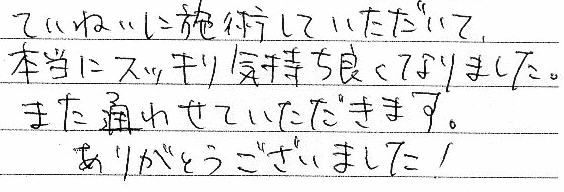 ていねいに施術していただいて、
本当にスッキリ気持ち良くなりました。
また通わせていただきます。
ありがとうございました!